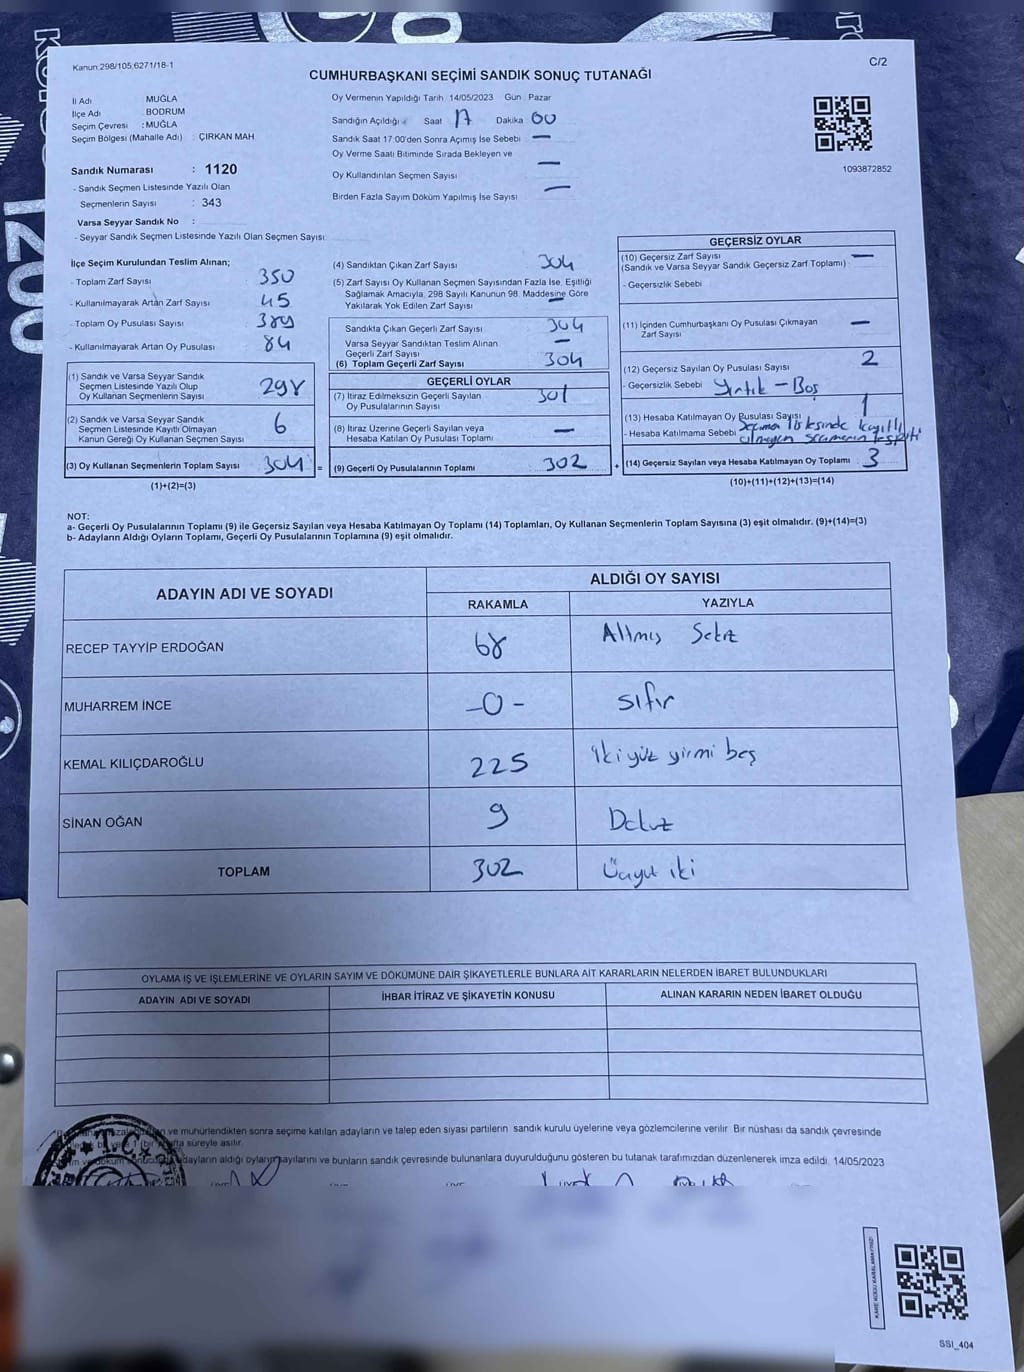 Kanun:298/105;6271/18-1
C/2
CUMHURBAŞKANI SEÇİMİ SANDIK SONUÇ TUTANAĞI
İl Adı MUĞLA
İlçe Adı BODRUM
Seçim Çevresi :MUĞLA
Seçim Bölgesi (Mahalle Adı) : ÇIRKAN MAH
Sandık Numarası : 1120
- Sandık Seçmen Listesinde Yazılı Olan
Seçmenlerin Sayısı : 343
Varsa Seyyar Sandık No :
- Seyyar Sandık Seçmen Listesinde Yazılı Olan Seçmen Sayısı:
Oy Vermenin Yapıldığı Tarih :14/05/2023 Gün : Pazar
Sandığın Açıldığı : Saat 17 Dakika 00
Sandık Saat 17.00'den Sonra Açımış İse Sebebi —
Oy Verme Saati Bitiminde Sırada Bekleyen ve
Oy Kullandırılan Seçmen Sayısı —
Birden Fazla Sayım Döküm Yapılmış İse Sayısı —
1093872852
İlçe Seçim Kurulundan Teslim Alınan;
- Toplam Zarf Sayısı 350
- Kullanılmayarak Artan Zarf Sayısı 45
- Toplam Oy Pusulası Sayısı 389
- Kullanılmayarak Artan Oy Pusulası 84
(1) Sandık ve Varsa Seyyar Sandık
Seçmen Listesinde Yazılı Olup
Oy Kullanan Seçmenlerin Sayısı 298
(2) Sandık ve Varsa Seyyar Sandık
Seçmen Listesinde Kayıtlı Olmayan
Kanun Gereği Oy Kullanan Seçmen Sayısı 6
(3) Oy Kullanan Seçmenlerin Toplam Sayısı 304 =
(1)+(2)=(3)
(4) Sandıktan Çıkan Zarf Sayısı 304
(5) Zarf Sayısı Oy Kullanan Seçmen Sayısından Fazla İse, Eşitliği
Sağlamak Amacıyla, 298 Sayılı Kanunun 98. Maddesine Göre
Yakılarak Yok Edilen Zarf Sayısı —
Sandıkta Çıkan Geçerli Zarf Sayısı 304
Varsa Seyyar Sandıktan Teslim Alınan
Geçerli Zarf Sayısı —
(6) Toplam Geçerli Zarf Sayısı 304
GEÇERLİ OYLAR
(7) İtiraz Edilmeksizin Geçerli Sayılan
Oy Pusulalarının Sayısı 301
(8) İtiraz Üzerine Geçerli Sayılan veya
Hesaba Katılan Oy Pusulası Toplamı —
(9) Geçerli Oy Pusulalarının Toplamı 302 +
GEÇERSİZ OYLAR
(10) Geçersiz Zarf Sayısı —
(Sandık ve Varsa Seyyar Sandık Geçersiz Zarf Toplamı)
- Geçersizlik Sebebi
(11) İçinden Cumhurbaşkanı Oy Pusulası Çıkmayan
Zarf Sayısı —
(12) Geçersiz Sayılan Oy Pusulası Sayısı 2
- Geçersizlik Sebebi Yırtık - Boş
(13) Hesaba Katılmayan Oy Pusulası Sayısı 1
- Hesaba Katılmama Sebebi Seçmen listesinde kayıtlı
olmayan seçmenin tespiti
(14) Geçersiz Sayılan veya Hesaba Katılmayan Oy Toplamı : 3
(10)+(11)+(12)+(13)=(14)
NOT:
a- Geçerli Oy Pusulalarının Toplamı (9) ile Geçersiz Sayılan veya Hesaba Katılmayan Oy Toplamı (14) Toplamları, Oy Kullanan Seçmenlerin Toplam Sayısına (3) eşit olmalıdır. (9)+(14)=(3)
b- Adayların Aldığı Oyların Toplamı, Geçerli Oy Pusulalarının Toplamına (9) eşit olmalıdır.
ADAYIN ADI VE SOYADI ALDIĞI OY SAYISI
RAKAMLA YAZIYLA
RECEP TAYYİP ERDOĞAN 68 Altmış Sekiz
MUHARREM İNCE -0- sıfır
KEMAL KILIÇDAROĞLU 225 iki yüz yirmi beş
SİNAN OĞAN 9 Dokuz
TOPLAM 302 Üçyüz iki
OYLAMA İŞ VE İŞLEMLERİNE VE OYLARIN SAYIM VE DÖKÜMÜNE DAİR ŞİKAYETLERLE BUNLARA AİT KARARLARIN NELERDEN İBARET BULUNDUKLARI
ADAYIN ADI VE SOYADI İHBAR İTİRAZ VE ŞİKAYETİN KONUSU ALINAN KARARIN NEDEN İBARET OLDUĞU
ve mühürlendikten sonra seçime katılan adayların ve talep eden siyasi partilerin sandık kurulu üyelerine veya gözlemcilerine verilir. Bir nüshası da sandık çevresinde
süreyle asılır.
adayların aldığı oyların sayılarını ve bunların sandık çevresinde bulunanlara duyurulduğunu gösteren bu tutanak tarafımızdan düzenlenerek imza edildi. 14/05/2023
T.C.
SSI_404